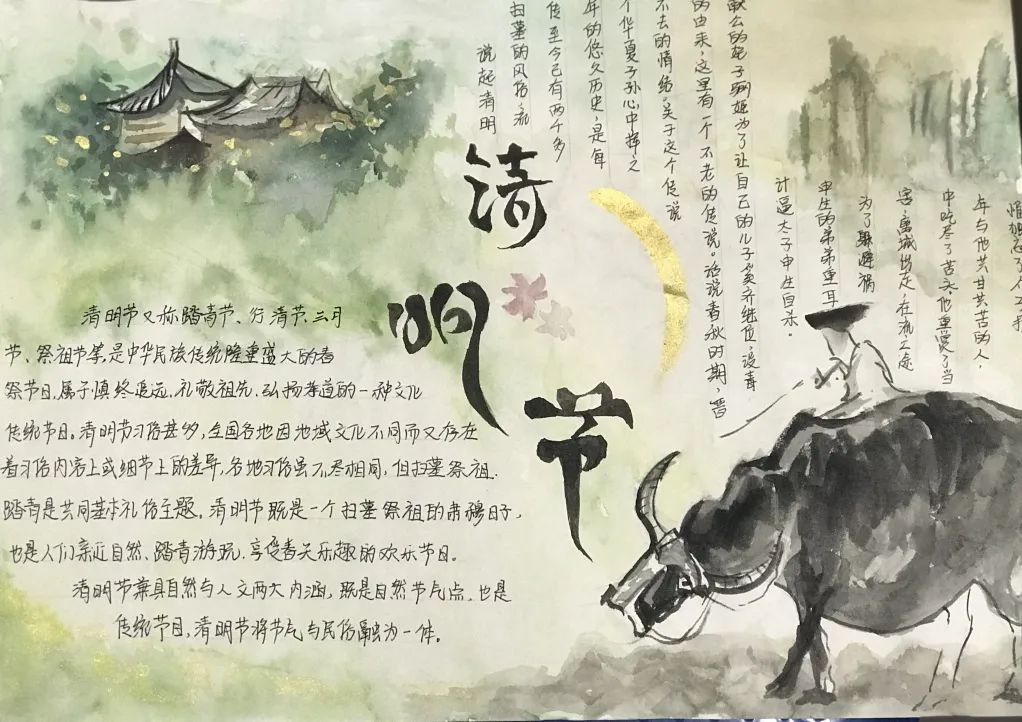 清
明
节
说起清明
扫墓的风俗,流
传至今已有两千多
年的悠久历史,是每
个华夏子孙心中挥之
不去的情结,关于这个传说
的由来,这里有一个不老的传说。话说春秋时期,晋
的妃子骊姬为了让自己的儿子奚齐继位,设毒
计逼太子申生自杀。
申生的弟弟重耳
为了躲避祸
害,离城出走,在流亡途
中吃尽了苦头,他重受了当
年与他共甘共苦的人,
清明节又称踏青节、行清节、三月
节、祭祖节等,是中华民族传统隆重盛大的春
祭节日,属于慎终追远、礼敬祖先、弘扬孝道的一种文化
传统节日。清明节习俗甚多,全国各地因地域文化不同而又存在
着习俗内容上或细节上的差异,各地习俗虽不尽相同,但扫墓祭祖.
踏青是共同基本礼俗主题。清明节既是一个扫墓祭祖的肃穆日子,
也是人们亲近自然、踏青游玩、享受春天乐趣的欢乐节日。
清明节兼具自然与人文两大内涵,既是自然节气点,也是
传统节日,清明节将节气与民俗融为一体。